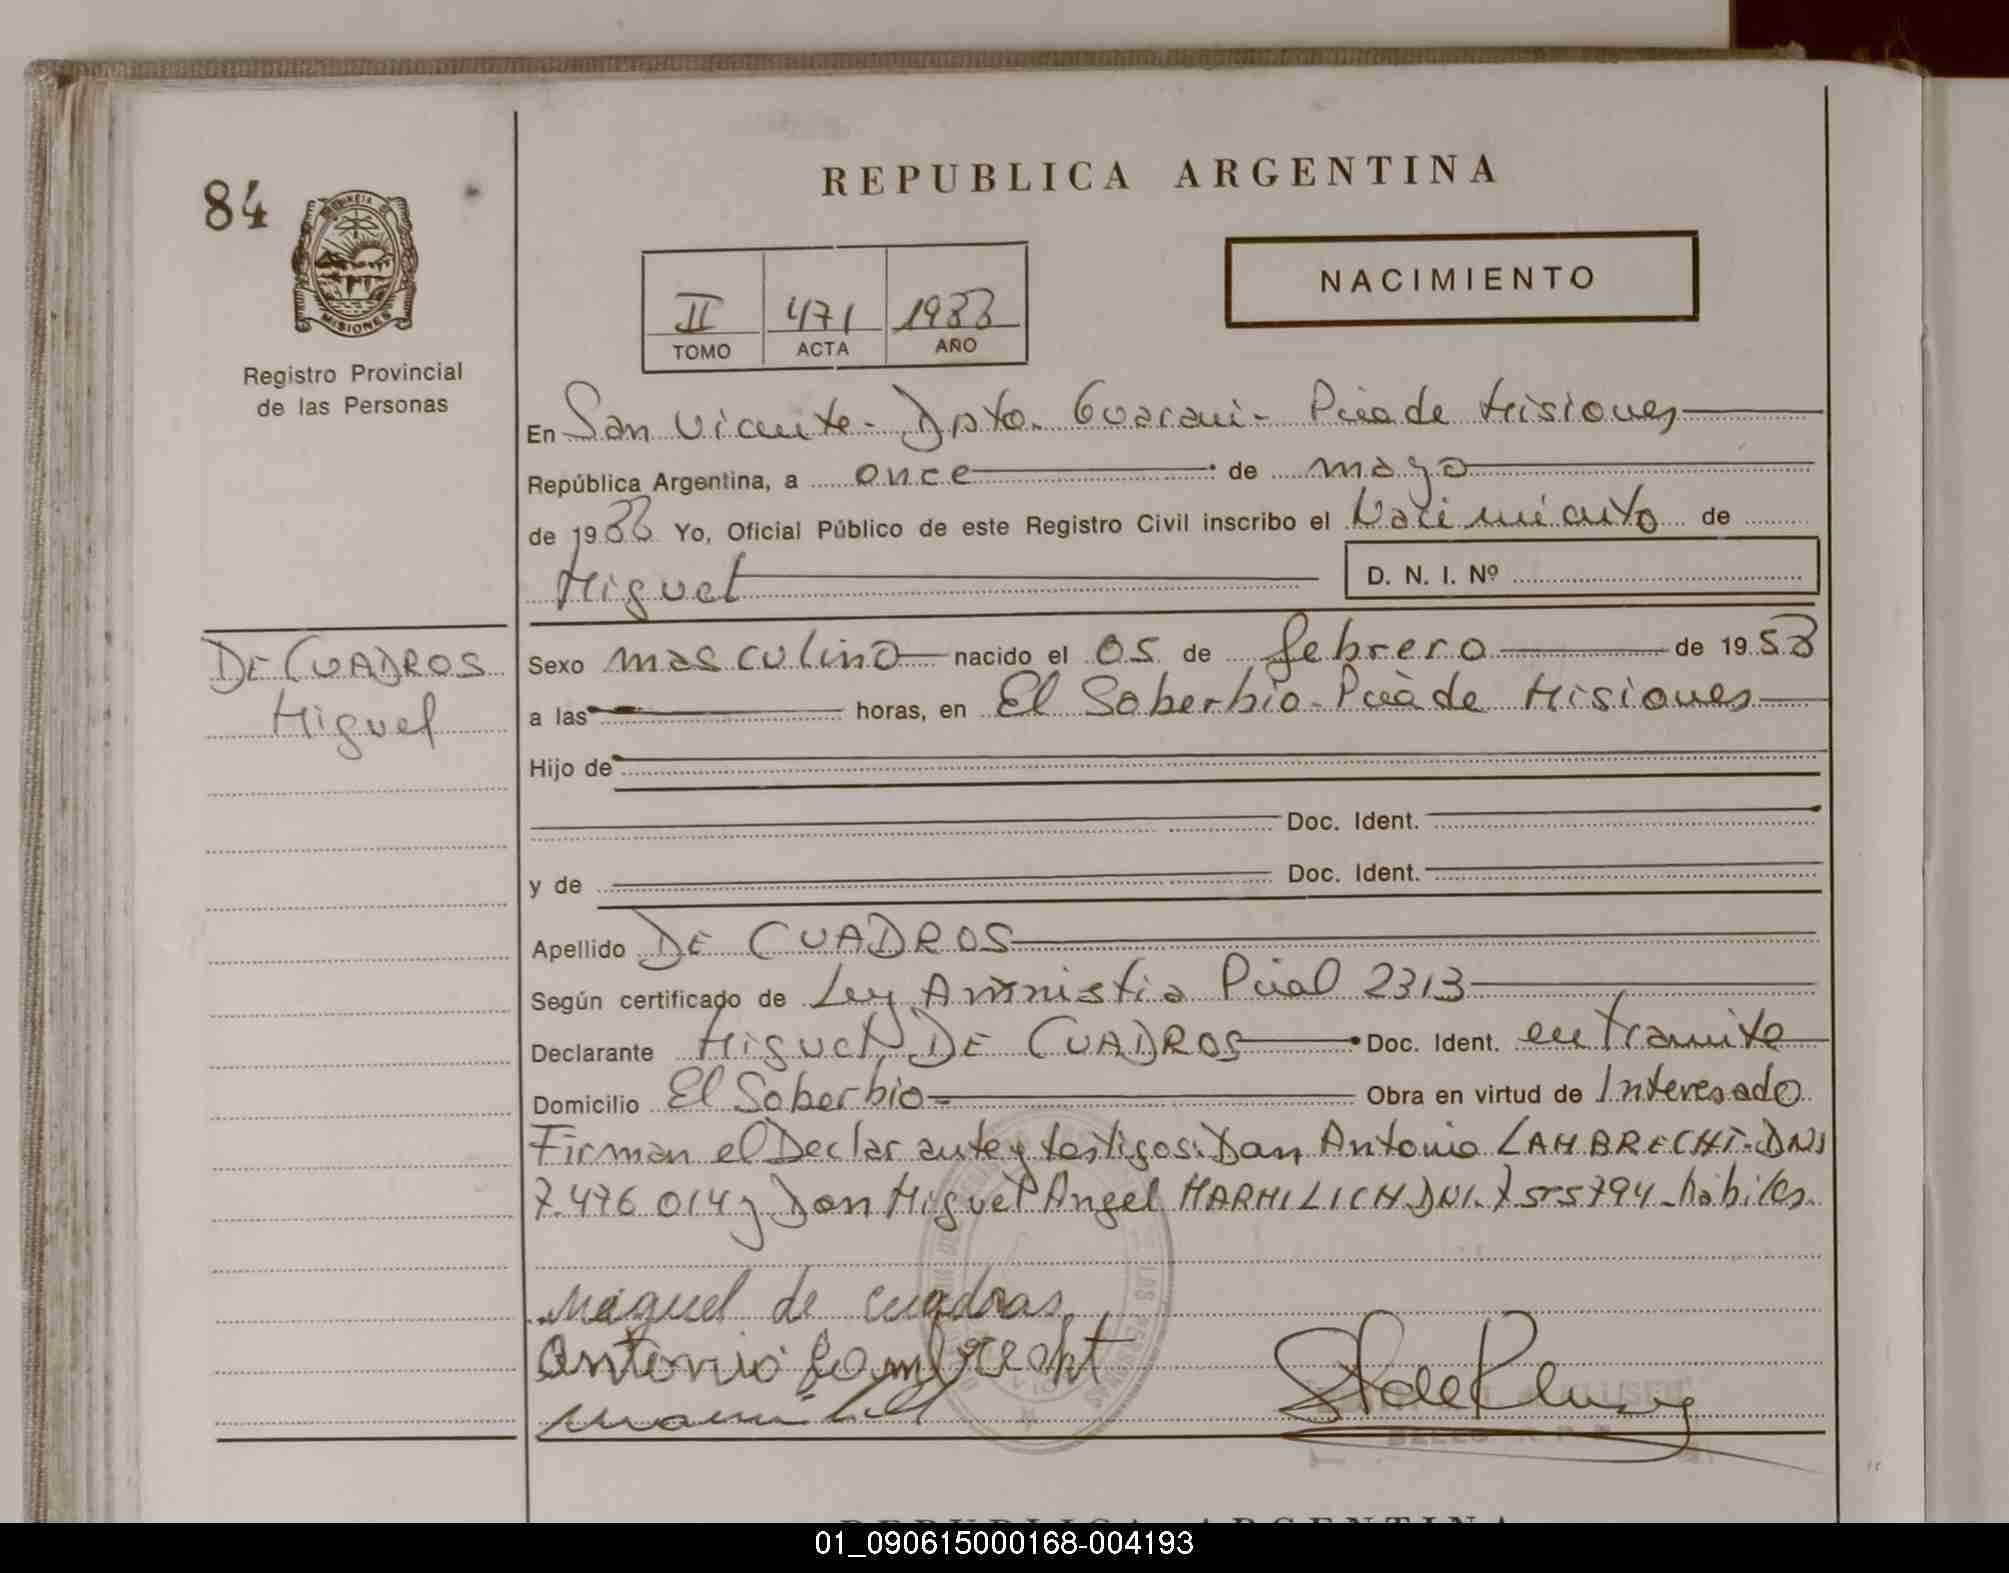 REPUBLICA ARGENTINA
84
PROVINCIA DE
MISIONES
NACIMIENTO
II 471 1988
TOMO ACTA AÑO
Registro Provincial
de las Personas
En San Vicente - Dpto. Guarani - Pcia de Misiones
República Argentina, a once de mayo
de 1988 Yo, Oficial Público de este Registro Civil inscribo el Nacimiento de
Miguel D. N. I. Nº
DE CUADROS
Miguel
Sexo masculino nacido el 05 de febrero de 1958
a las horas, en El Soberbio - Pcia de Misiones
Hijo de
Doc. Ident.
y de Doc. Ident.
Apellido DE CUADROS
Según certificado de Ley Amnistia Pcial 2313
Declarante Miguel DE CUADROS Doc. Ident. en tramite
Domicilio El Soberbio Obra en virtud de Interesado
Firman el Declarante y testigos: Don Antonio LAMBRECHT - DNI
7.476 014 y Don Miguel Angel MARMILICH DNI. 7 555794 - habiles.
Miguel de cuadros
Antonio Lambrecht
REPUBLICA ARGENTINA
01_090615000168-004193